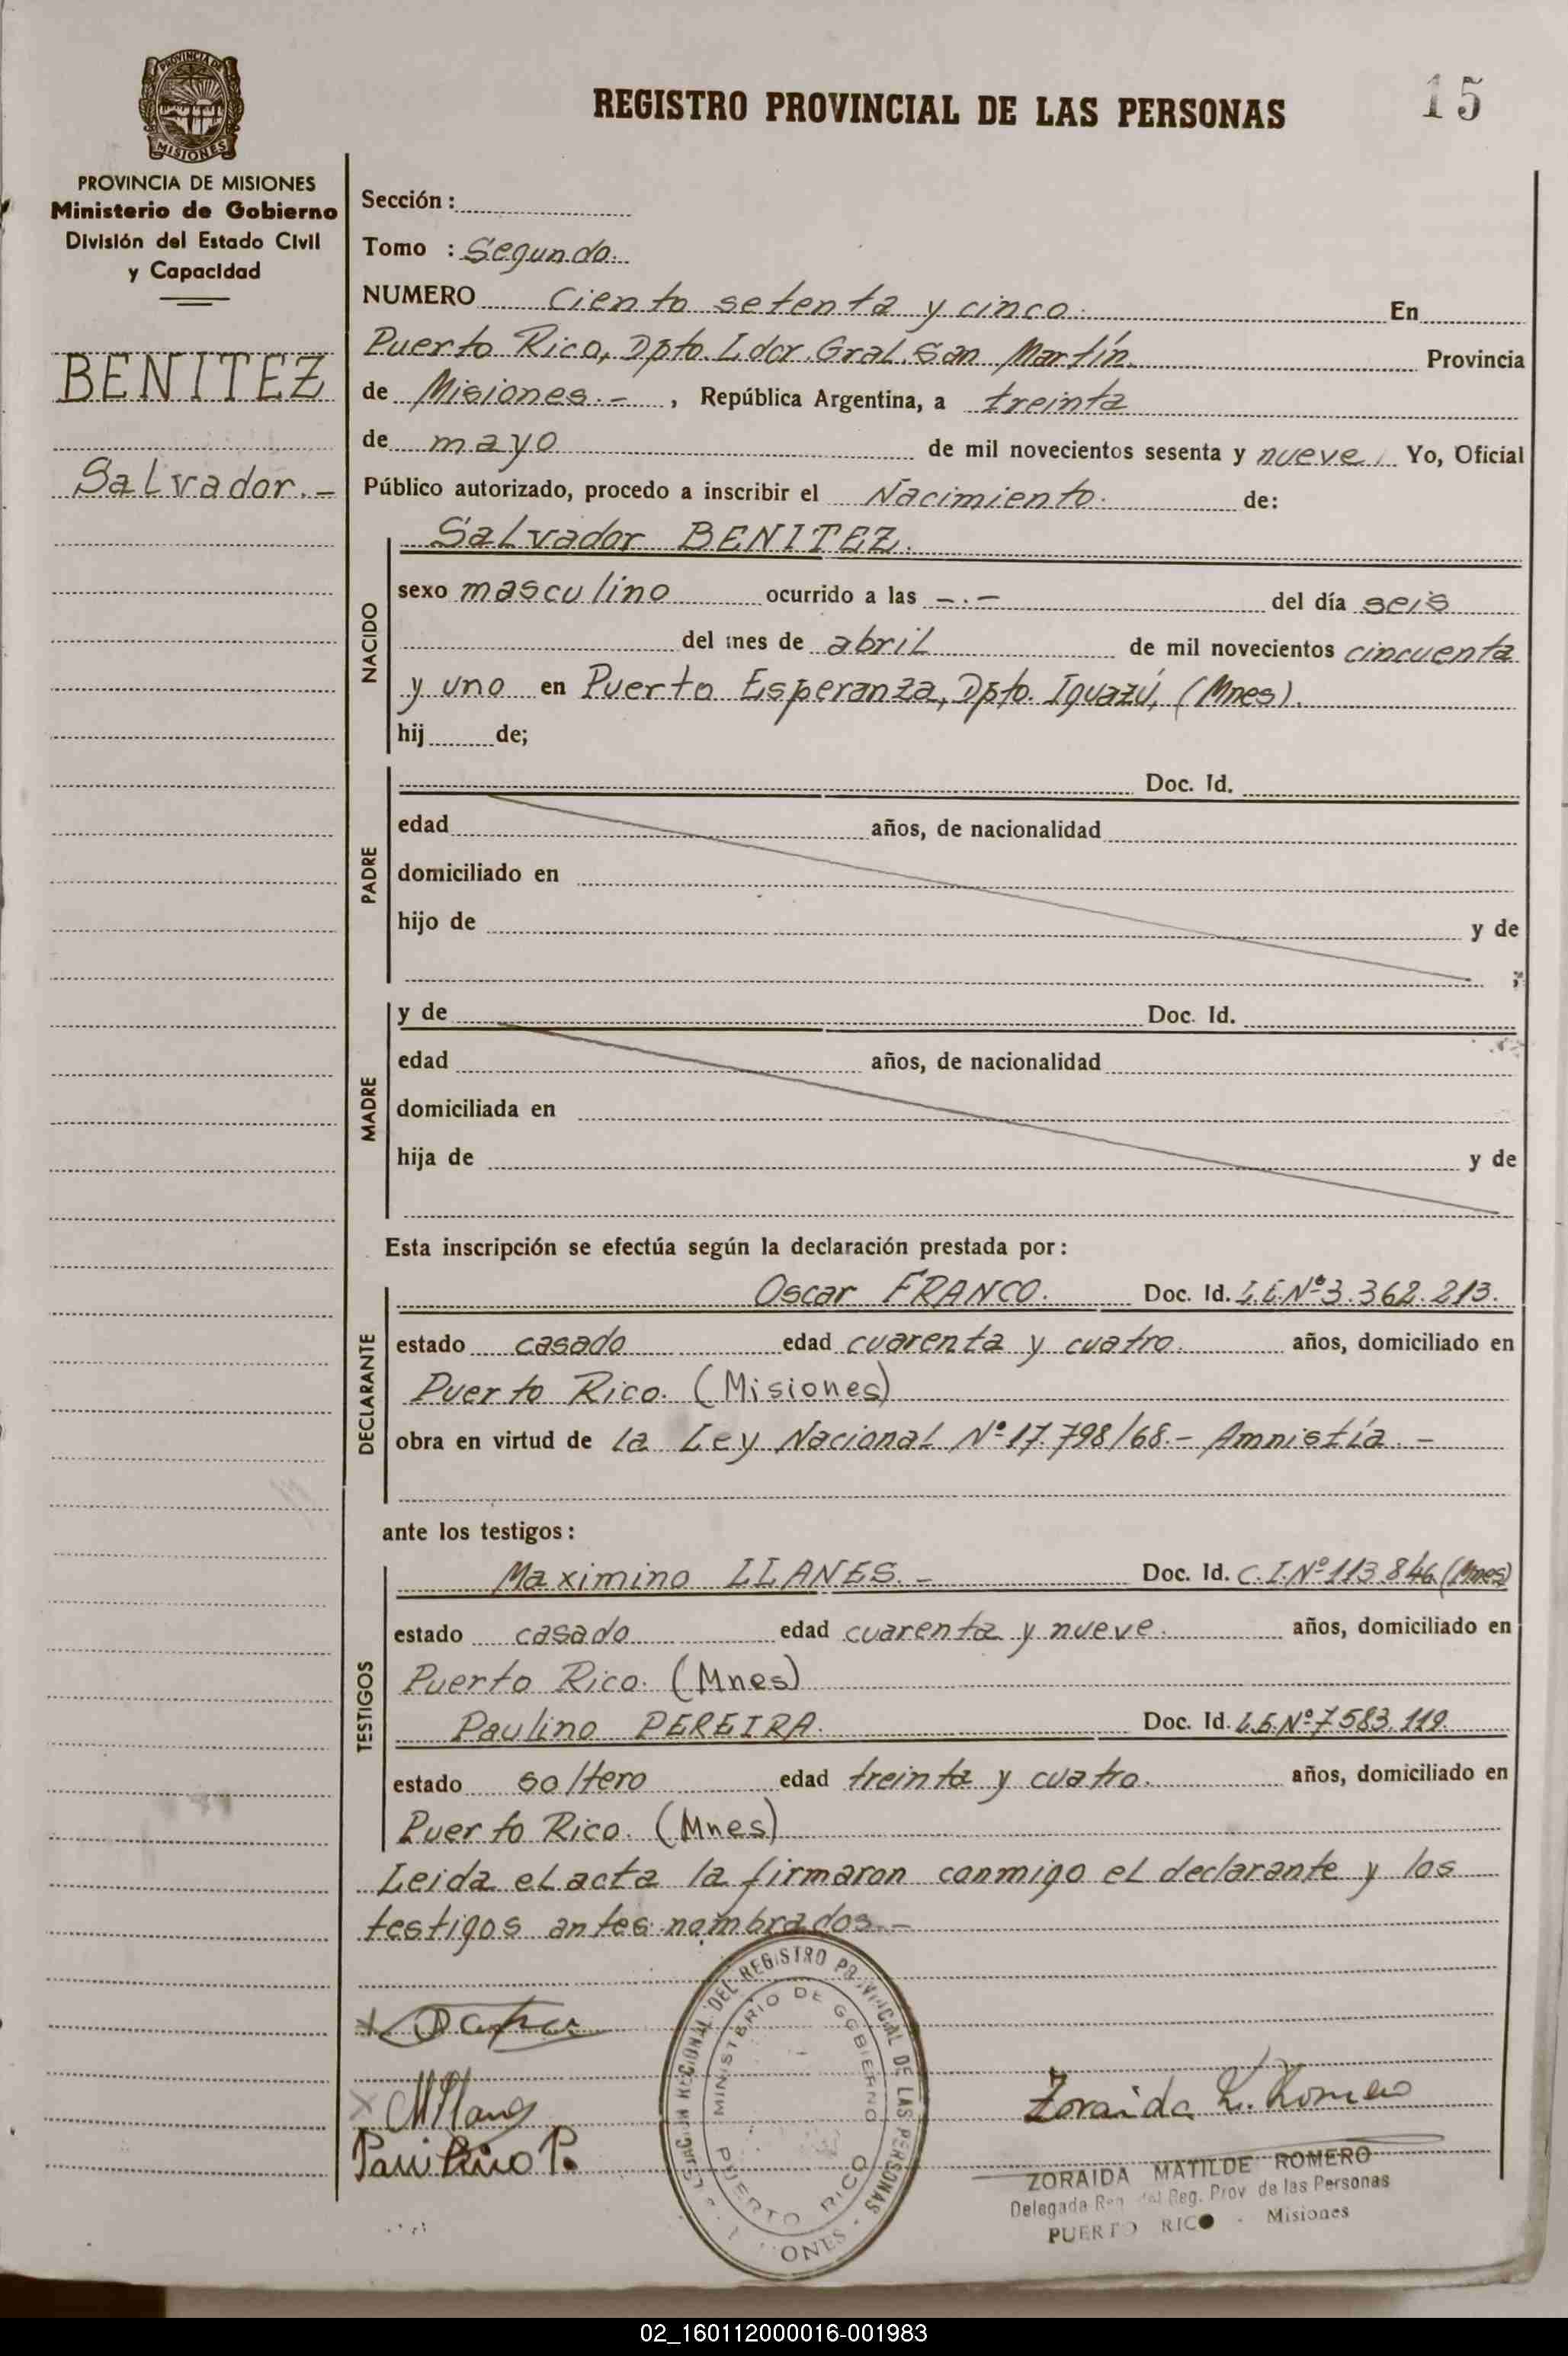 REGISTRO PROVINCIAL DE LAS PERSONAS
15
PROVINCIA DE MISIONES
PROVINCIA DE MISIONES
Ministerio de Gobierno
División del Estado Civil
y Capacidad
BENITEZ
Salvador.-
Sección :
Tomo : Segundo.
NUMERO Ciento setenta y cinco. En
Puerto Rico, Dpto. Ldor. Gral. San Martín. Provincia
de Misiones.- , República Argentina, a treinta
de mayo de mil novecientos sesenta y nueve, Yo, Oficial
Público autorizado, procedo a inscribir el Nacimiento. de:
NACIDO
Salvador BENITEZ.
sexo masculino ocurrido a las -.- del día seis
del mes de abril de mil novecientos cincuenta
y uno en Puerto Esperanza, Dpto. Iguazú, (Mnes).
hij de;
PADRE
Doc. Id.
edad años, de nacionalidad
domiciliado en
hijo de y de
;
MADRE
y de Doc. Id.
edad años, de nacionalidad
domiciliada en
hija de y de
Esta inscripción se efectúa según la declaración prestada por :
DECLARANTE
Oscar FRANCO. Doc. Id. L.E.Nº3.362.213.
estado casado edad cuarenta y cuatro. años, domiciliado en
Puerto Rico. (Misiones)
obra en virtud de la Ley Nacional Nº 17.798/68.- Amnistía.-
ante los testigos :
TESTIGOS
Maximino LLANES.- Doc. Id. C.I.Nº113.846 (Mnes)
estado casado edad cuarenta y nueve. años, domiciliado en
Puerto Rico. (Mnes)
Paulino PEREIRA. Doc. Id. L.E.Nº7.583.119.
estado soltero edad treinta y cuatro. años, domiciliado en
Puerto Rico. (Mnes)
Leida el acta la firmaron conmigo el declarante y los
testigos antes nombrados.-
MLlanes
Paulino P.
REGIONAL DEL REGISTRO PROVINCIAL DE LAS PERSONAS
MINISTERIO DE GOBIERNO
PUERTO RICO
Zoraida M. Romero
ZORAIDA MATILDE ROMERO
Delegada Reg. del Reg. Prov. de las Personas
PUERTO RICO - Misiones
02_160112000016-001983